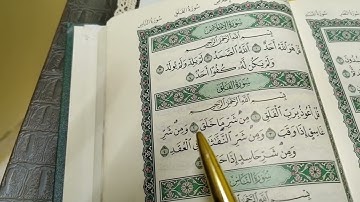 سُورَةُ الإِخْلَاصِ
بِسْمِ اللَّهِ الرَّحْمَٰنِ الرَّحِيمِ
قُلْ هُوَ اللَّهُ أَحَدٌ ۝ اللَّهُ الصَّمَدُ ۝ لَمْ يَلِدْ وَلَمْ يُولَدْ ۝
وَلَمْ يَكُن لَّهُ كُفُوًا أَحَدٌ ۝
سُورَةُ الْفَلَقِ
بِسْمِ اللَّهِ الرَّحْمَٰنِ الرَّحِيمِ
قُلْ أَعُوذُ بِرَبِّ الْفَلَقِ ۝ مِن شَرِّ مَا خَلَقَ ۝ وَمِن شَرِّ
غَاسِقٍ إِذَا وَقَبَ ۝ وَمِن شَرِّ النَّفَّاثَاتِ فِي الْعُقَدِ ۝
وَمِن شَرِّ حَاسِدٍ إِذَا حَسَدَ ۝
سُورَةُ النَّاسِ